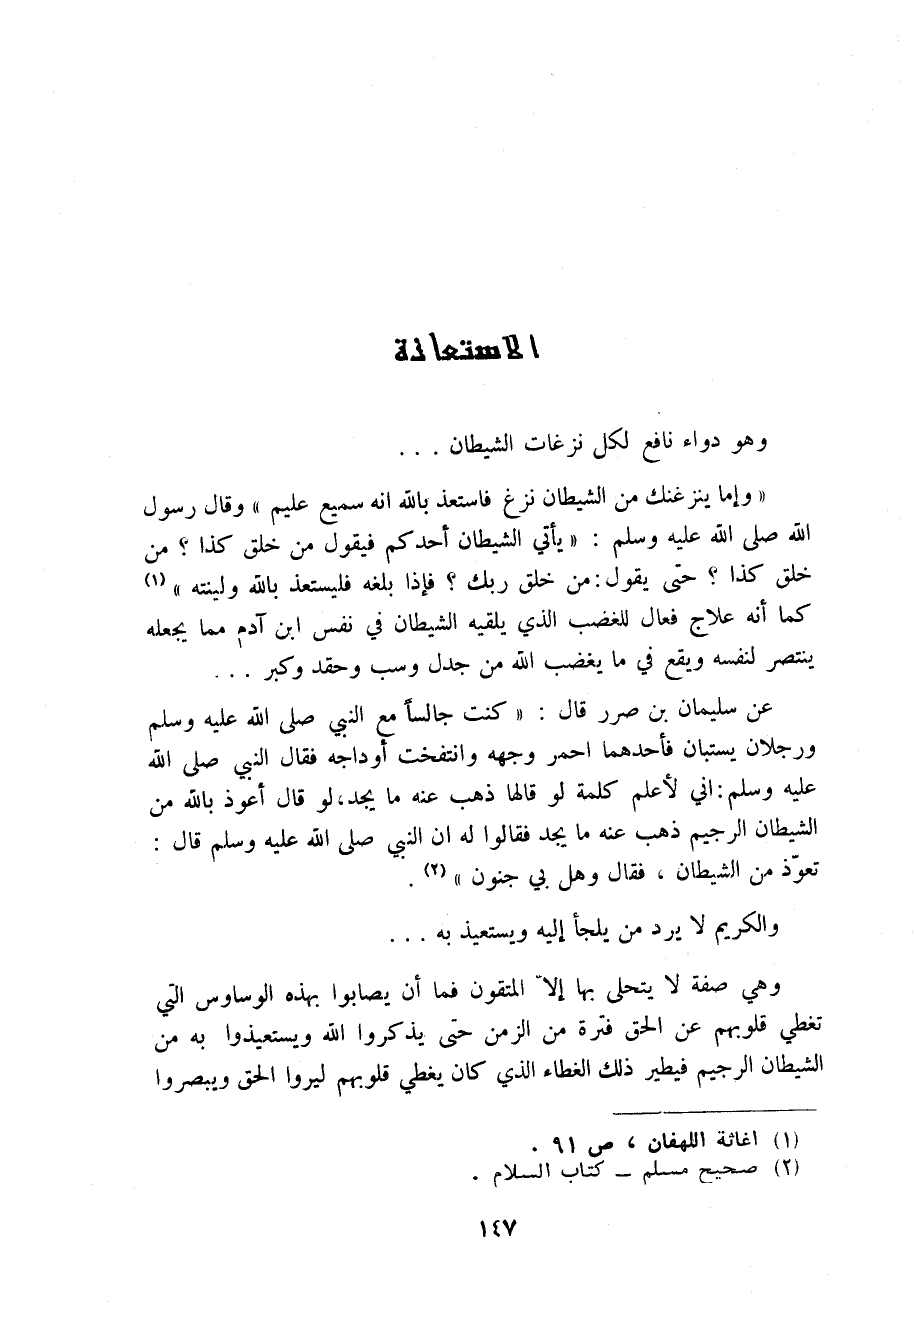 الاستعاذة
وهو دواء نافع لكل نزغات الشيطان . . .
« وإما ينزغنك من الشيطان نزغ فاستعذ بالله انه سميع عليم » وقال رسول
الله صلى الله عليه وسلم : « يأتي الشيطان أحدكم فيقول من خلق كذا ؟ من
خلق كذا ؟ حتى يقول : من خلق ربك ؟ فإذا بلغه فليستعذ بالله ولينته » (١)
كما أنه علاج فعال للغضب الذي يلقيه الشيطان في نفس ابن آدم مما يجعله
ينتصر لنفسه ويقع في ما يغضب الله من جدل وسب وحقد وكبر . . .
عن سليمان بن صرر قال : « كنت جالساً مع النبي صلى الله عليه وسلم
ورجلان يستبان فأحدهما احمر وجهه وانتفخت أوداجه فقال النبي صلى الله
عليه وسلم : اني لأعلم كلمة لو قالها ذهب عنه ما يجد ، لو قال أعوذ بالله من
الشيطان الرجيم ذهب عنه ما يجد فقالوا له ان النبي صلى الله عليه وسلم قال :
تعوّذ من الشيطان ، فقال وهل بي جنون » (٢) .
والكريم لا يرد من يلجأ إليه ويستعيذ به . . .
وهي صفة لا يتحلى بها إلاّ المتقون فما أن يصابوا بهذه الوساوس التي
تغطي قلوبهم عن الحق فترة من الزمن حتى يذكروا الله ويستعيذوا به من
الشيطان الرجيم فيطير ذلك الغطاء الذي كان يغطي قلوبهم ليروا الحق ويبصروا
(١) اغاثة اللهفان ، ص ٩١ .
(٢) صحيح مسلم – كتاب السلام .
١٤٧